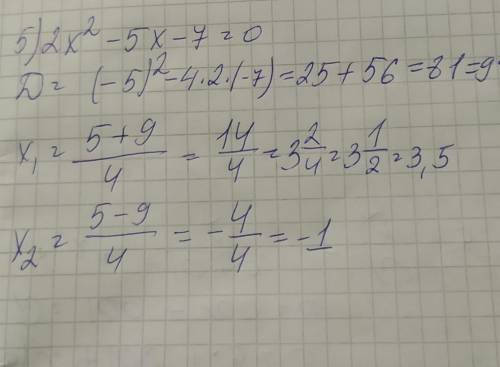 5) 2x² - 5x - 7 = 0
D = (-5)² - 4·2·(-7) = 25 + 56 = 81 = 9
x₁ = (5+9)/4 = 14/4 = 3 2/4 = 3 1/2 = 3,5
x₂ = (5-9)/4 = -4/4 = -1